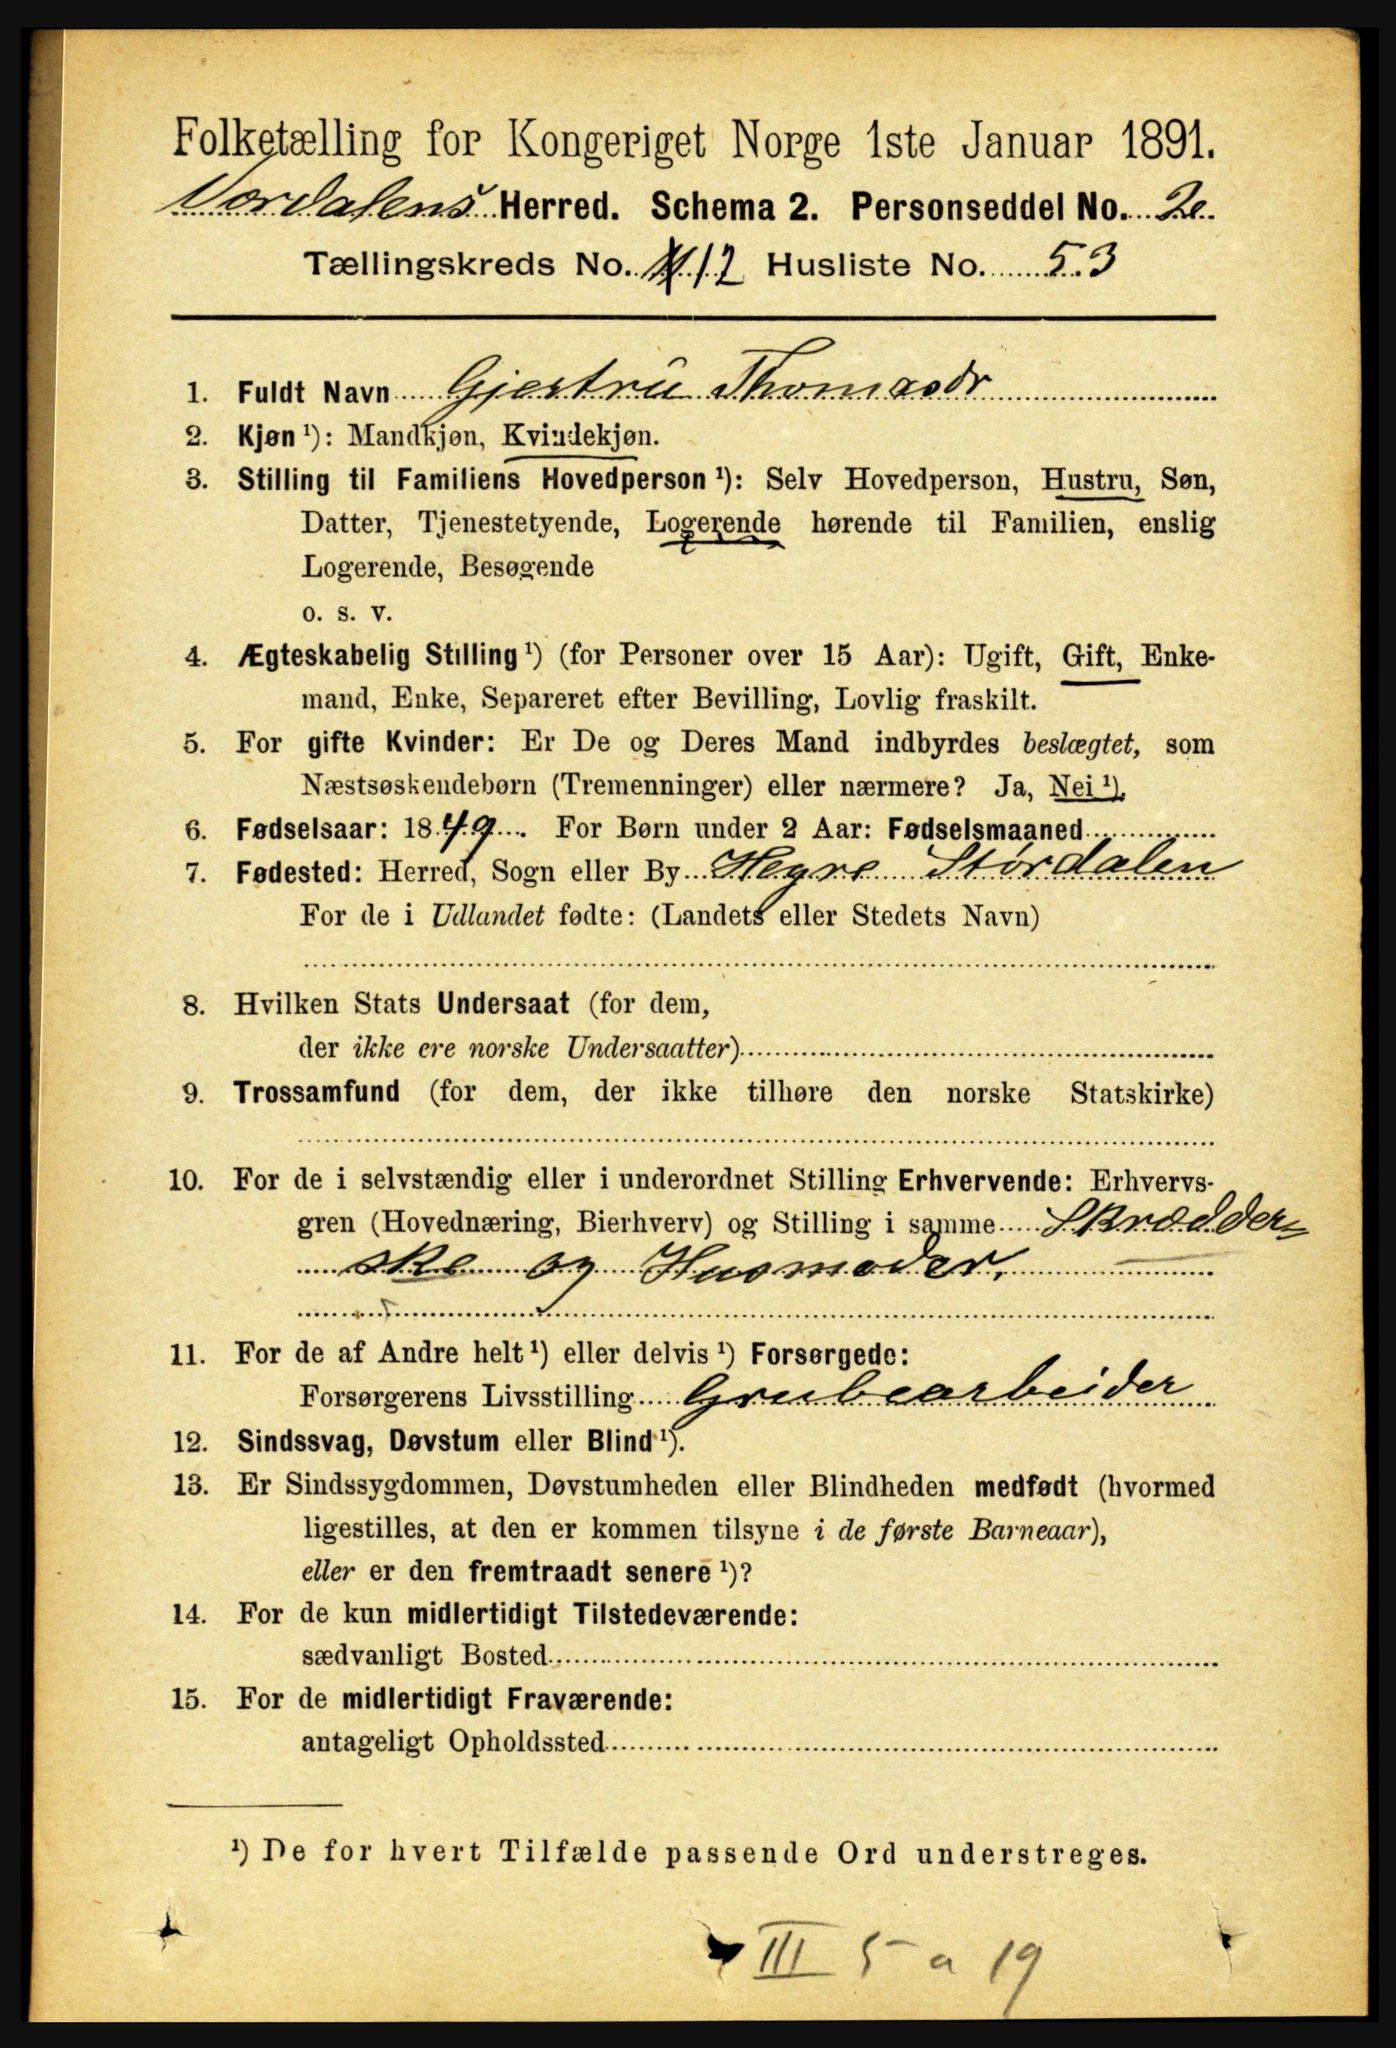 Folketælling for Kongeriget Norge 1ste Januar 1891.
Værdalens Herred. Schema 2. Personseddel No. 2
Tællingskreds No. 12 Husliste No. 53
1. Fuldt Navn Gjertrü Thomasdr
2. Kjøn ¹): Mandkjøn, Kvindekjøn.
3. Stilling til Familiens Hovedperson ¹): Selv Hovedperson, Hustru, Søn,
Datter, Tjenestetyende, Logerende hørende til Familien, enslig
Logerende, Besøgende
o. s. v.
4. Ægteskabelig Stilling ¹) (for Personer over 15 Aar): Ugift, Gift, Enke-
mand, Enke, Separeret efter Bevilling, Lovlig fraskilt.
5. For gifte Kvinder: Er De og Deres Mand indbyrdes beslægtet, som
Næstsøskendebørn (Tremenninger) eller nærmere? Ja, Nei ¹).
6. Fødselsaar: 1849. For Børn under 2 Aar: Fødselsmaaned
7. Fødested: Herred, Sogn eller By Hegre Størdalen
For de i Udlandet fødte: (Landets eller Stedets Navn)
8. Hvilken Stats Undersaat (for dem,
der ikke ere norske Undersaatter)
9. Trossamfund (for dem, der ikke tilhøre den norske Statskirke)
10. For de i selvstændig eller i underordnet Stilling Erhvervende: Erhvervs-
gren (Hovednæring, Bierhverv) og Stilling i samme Skrædder=
ske og Husmoder.
11. For de af Andre helt ¹) eller delvis ¹) Forsørgede:
Forsørgerens Livsstilling Grubearbeider
12. Sindssvag, Døvstum eller Blind ¹).
13. Er Sindssygdommen, Døvstumheden eller Blindheden medfødt (hvormed
ligestilles, at den er kommen tilsyne i de første Barneaar),
eller er den fremtraadt senere ¹)?
14. For de kun midlertidigt Tilstedeværende:
sædvanligt Bosted
15. For de midlertidigt Fraværende:
antageligt Opholdssted
¹) De for hvert Tilfælde passende Ord understreges.
III 5 a 19